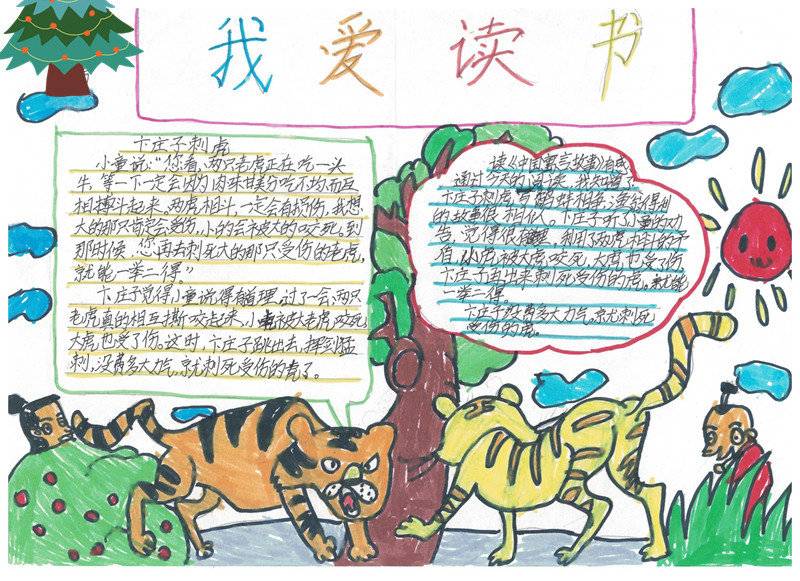 我爱读书
卞庄子刺虎
小童说:“您看,两只老虎正在吃一头
牛,等一下一定会因为肉味甘美分吃不均而互
相搏斗起来。两虎相斗,一定会有损伤,我想
大的那只肯定会受伤,小的会被大的咬死,到
那时候,您再去刺死大的那只受伤的老虎,
就能一举二得。”
卞庄子觉得小童说得有道理,过了一会,两只
老虎真的相互撕咬起来,小虎被大老虎咬死
大虎也受了伤。这时,卞庄子跳出去,挥剑猛
刺,没费多大力气,就刺死受伤的虎了。
读《中国寓言故事》有感
通过今天的阅读,我知道了
卞庄子刺虎与鹬蚌相争,渔翁得利
的故事很相似。卞庄子听了小童的劝
告,觉得很有理,利用了两虎冲斗的矛
盾,小虎被大虎咬死,大虎也受了伤,
卞庄子再出来刺死受伤的虎。就能
一举二得。
卞庄子没费多大力气,就刺死
受伤的虎。